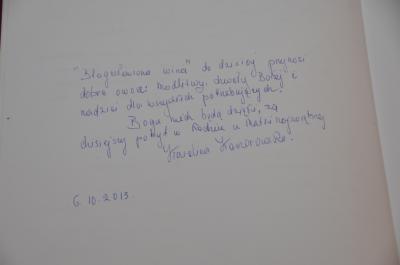 "Błogosławiona wina" do dzisiaj przynosi
dobre owoce: modlitwy, chwały Bożej i
nadziei dla wszystkich potrzebujących.
Bogu niech będą dzięki, za
dzisiejszy pobyt w Kodniu u Matki
Karolina
6.10.2013.